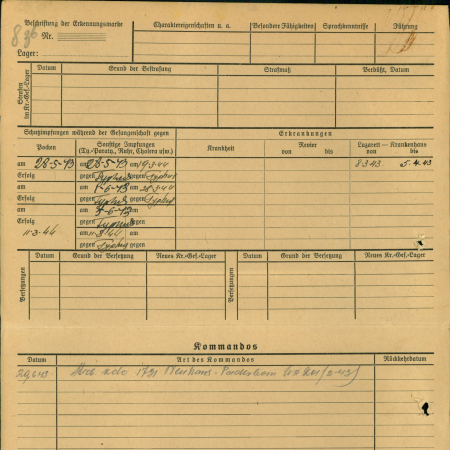 Beschriftung der Erkennungsmarke
Nr.
Lager:
Charaktereigenschaften u. a.
Besondere Fähigkeiten
Sprachkenntnisse
Führung
Strafen im Kr.-Gef.-Lager
Datum
Grund der Bestrafung
Strafmaß
Verbüßt, Datum
Schutzimpfungen während der Gefangenschaft gegen
Erkrankungen
Pocken
Sonstige Impfungen
(Ty.-Paraty., Ruhr, Cholera usw.)
Krankheit
Revier
von bis
Lazarett — Krankenhaus
von bis
am 28-5-43 am 28-5-43 am 19.3.44 8343 5.4.43
Erfolg gegen Typhus gegen Typhus
am am 1-6-43 am 28-3-44
Erfolg gegen Typhus gegen Typhus
am am am
Erfolg gegen Typhus gegen
11-3-44 am 11-3-44 am
gegen Typhus gegen
Versetzungen
Datum
Grund der Versetzung
Neues Kr.-Gef.-Lager
Versetzungen
Datum
Grund der Versetzung
Neues Kr.-Gef.-Lager
Kommandos
Datum
Art des Kommandos
Rückkehrdatum
Arb. kdo 1721 Neuhaus-Paderborn